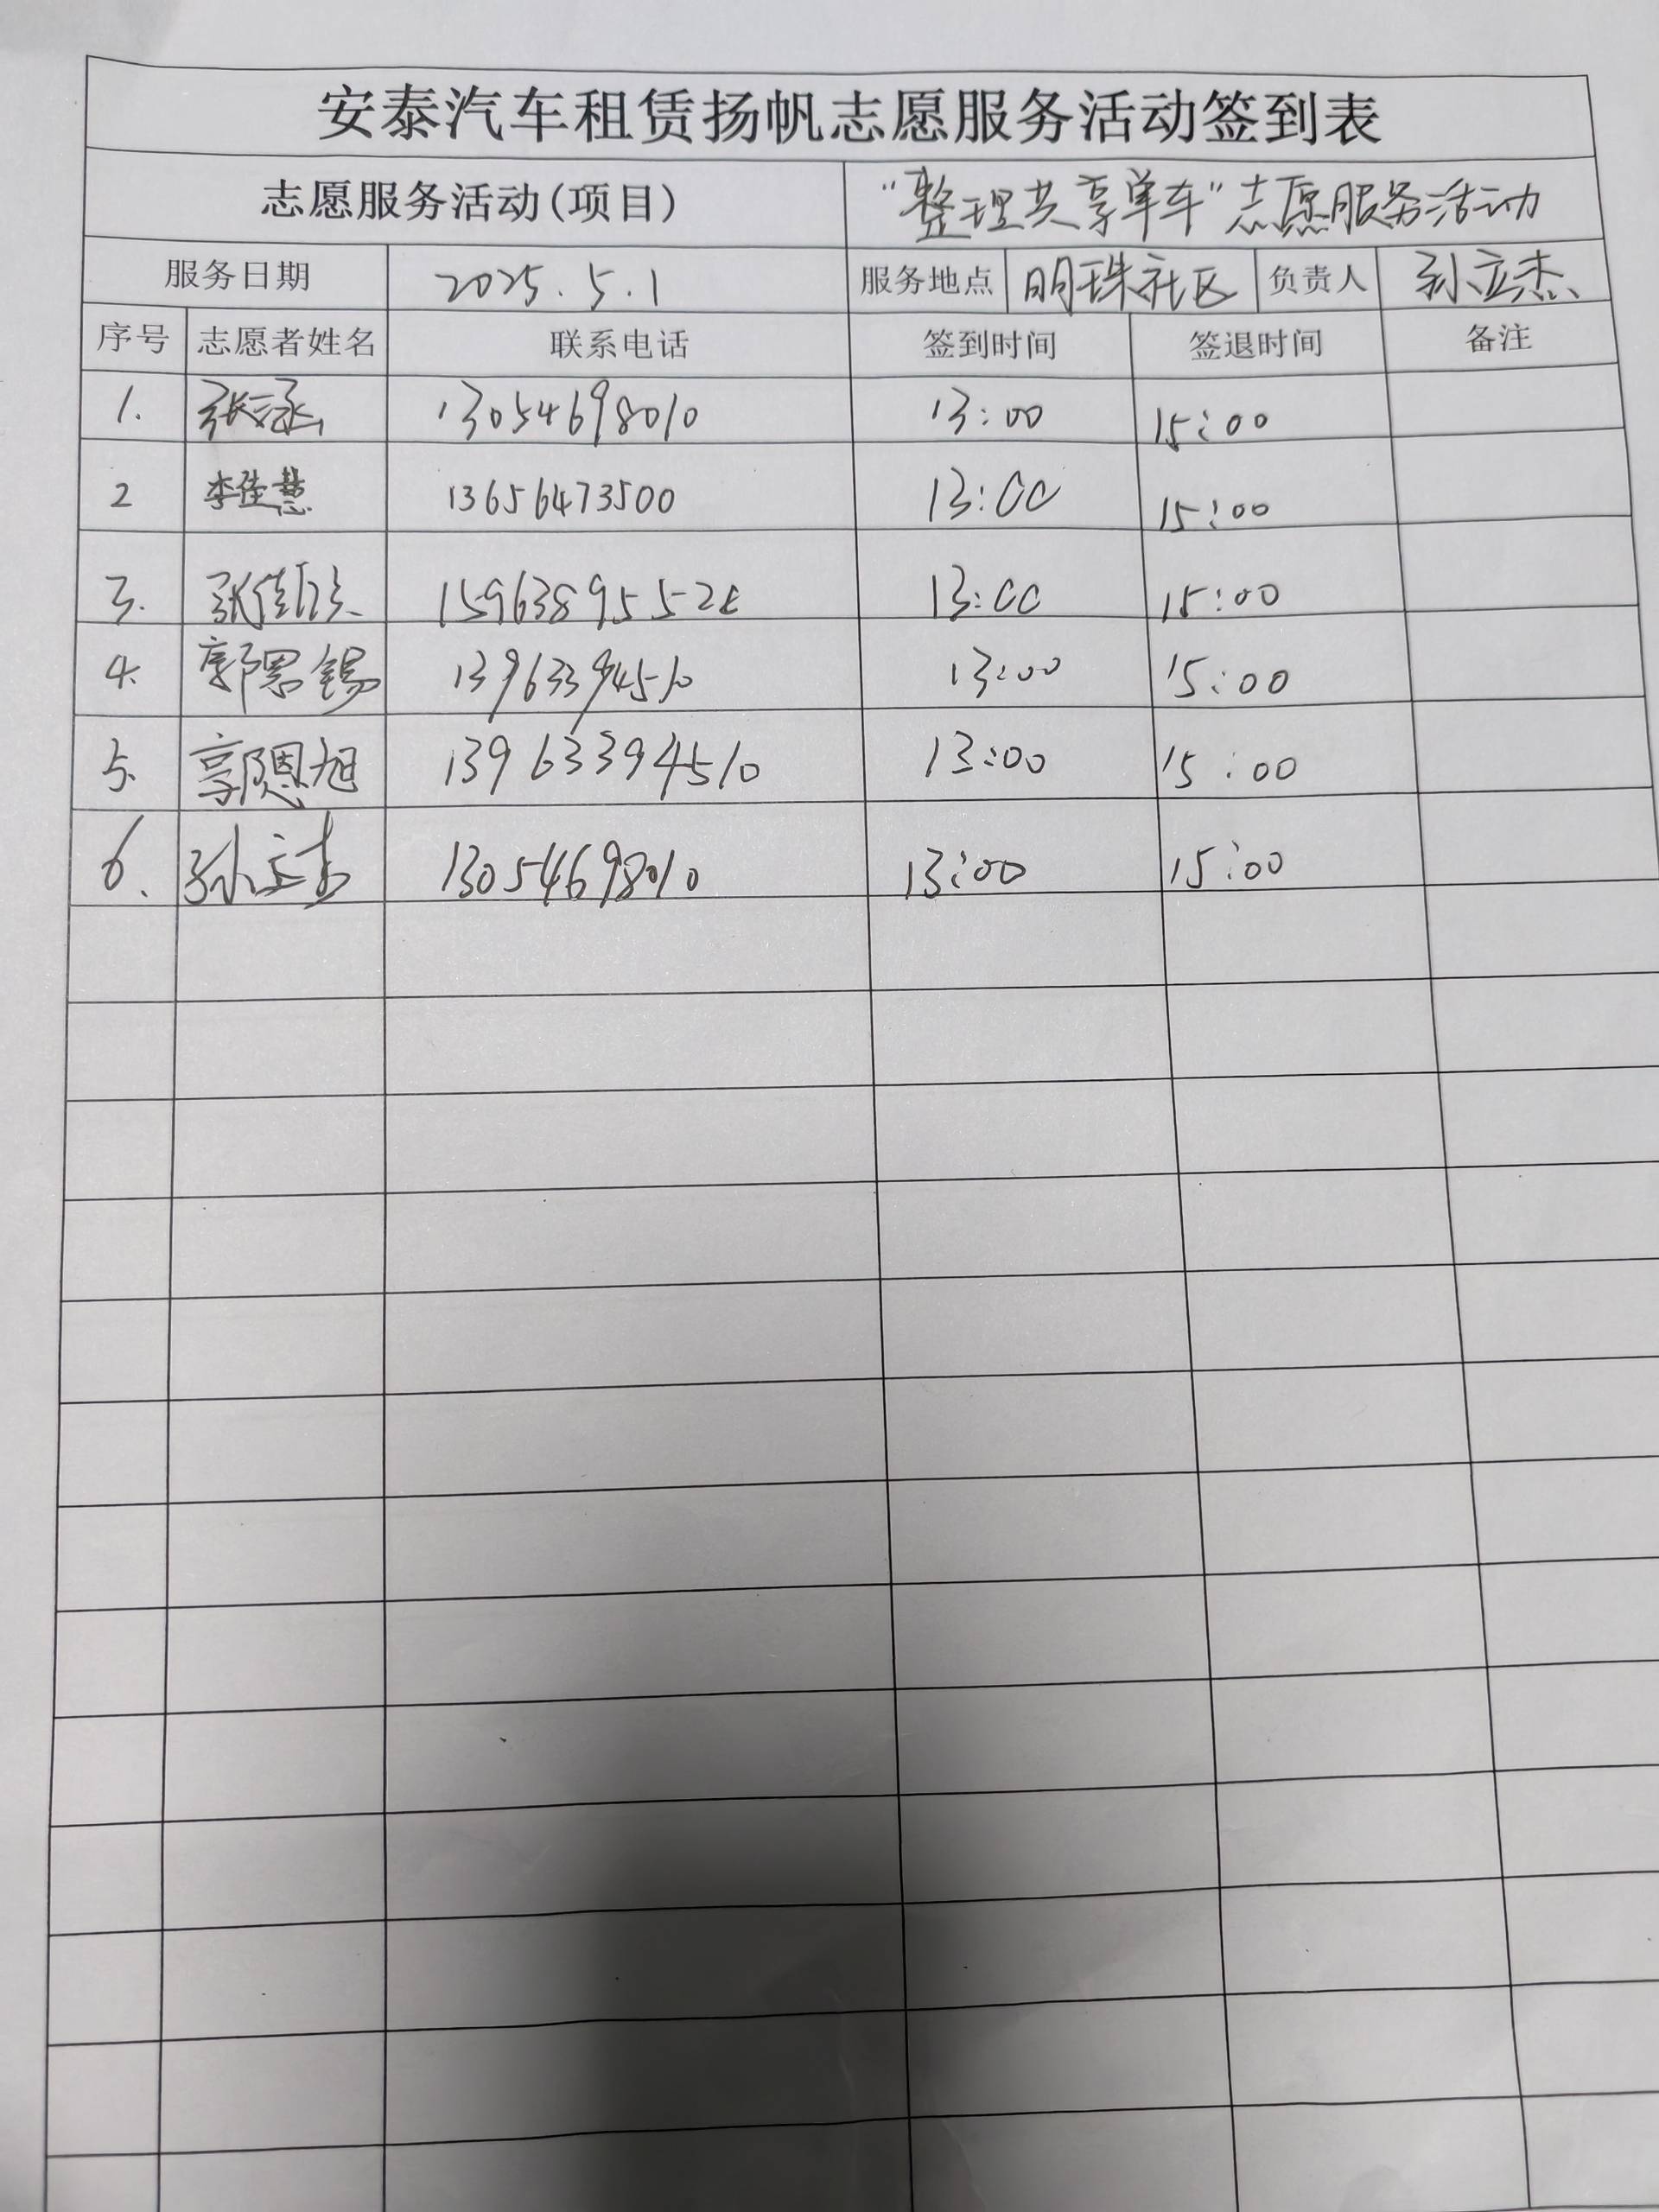 安泰汽车租赁扬帆志愿服务活动签到表
志愿服务活动(项目) "整理共享单车"志愿服务活动
服务日期 2025.5.1 服务地点 明珠社区 负责人 孙立杰
序号 志愿者姓名 联系电话 签到时间 签退时间 备注
1. 张云涵 13054698010 13:00 15:00
2 李佳慧 13656473500 13:00 15:00
3. 张佳 13:00 15:00
4. 郭恩锡 13963394510 13:00 15:00
5. 郭恩旭 13963394510 13:00 15:00
6. 孙立杰 13054698010 13:00 15:00